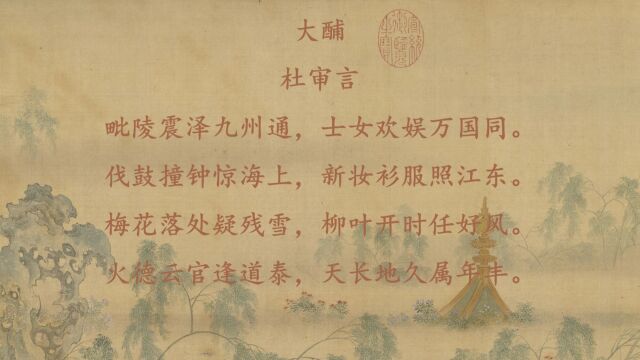 大酺
杜审言
毗陵震泽九州通，士女欢娱万国同。
伐鼓撞钟惊海上，新妆袨服照江东。
梅花落处疑残雪，柳叶开时任好风。
火德云官逢道泰，天长地久属年丰。